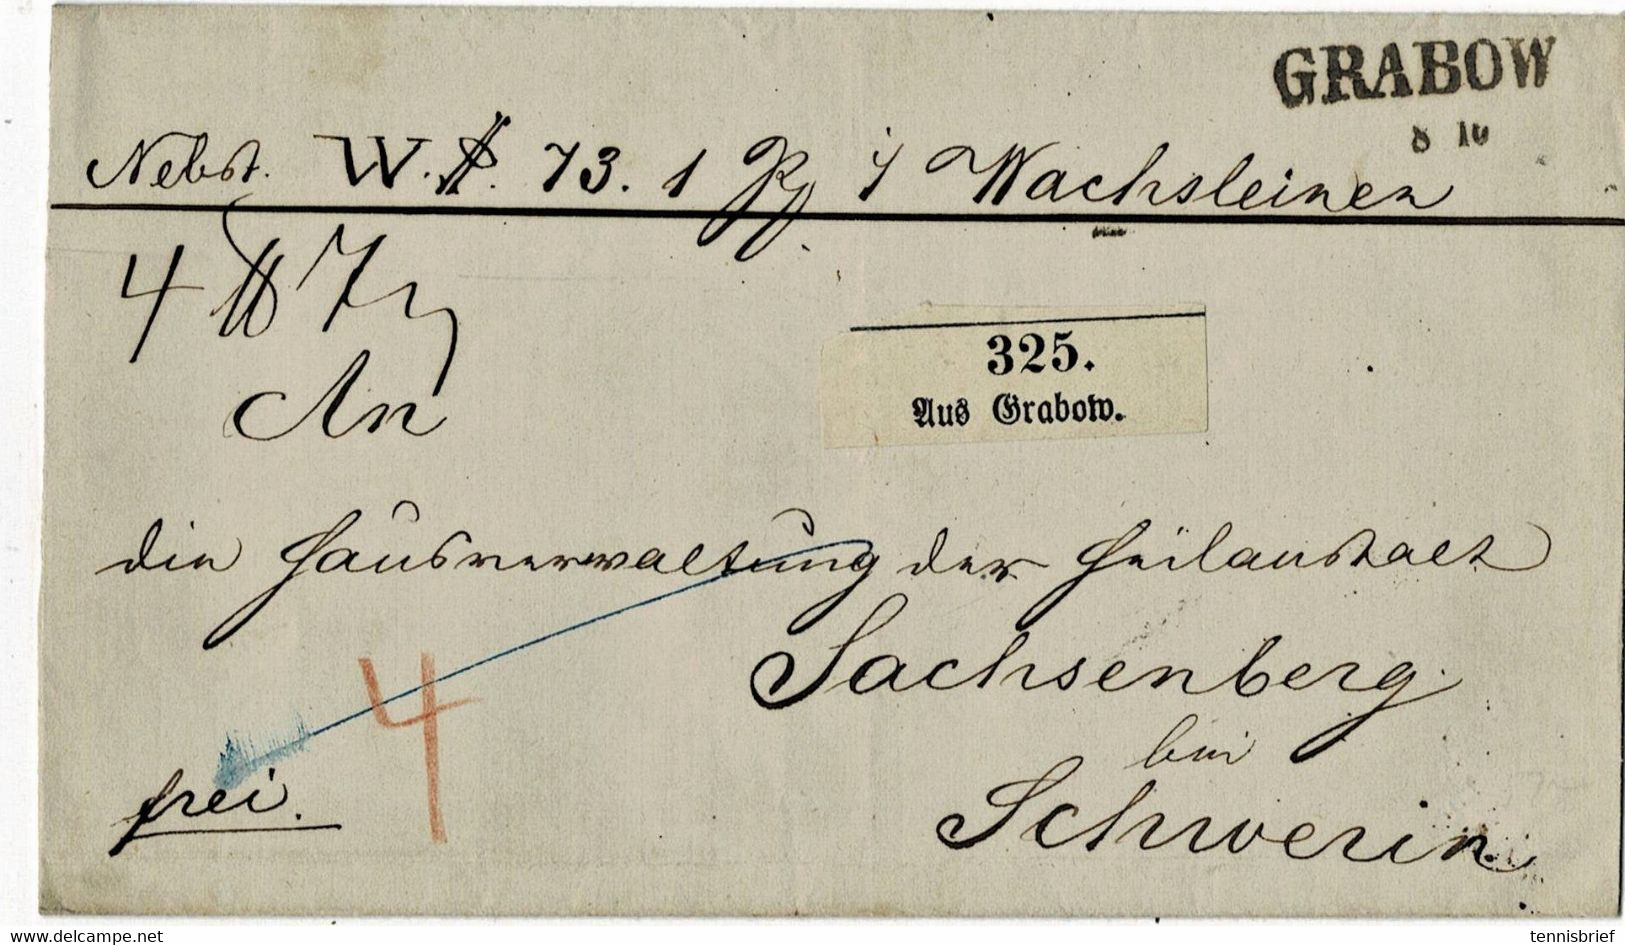 GRABOW
8 10
Nebst. W. 73. 1 i Wachsleinen
4 ℔ 7
325.
Aus Grabow.
An
die Hausverwaltung der Heilanstalt
Sachsenberg
bei
Schwerin.
4
frei.
www.delcampe.net
tennisbrief